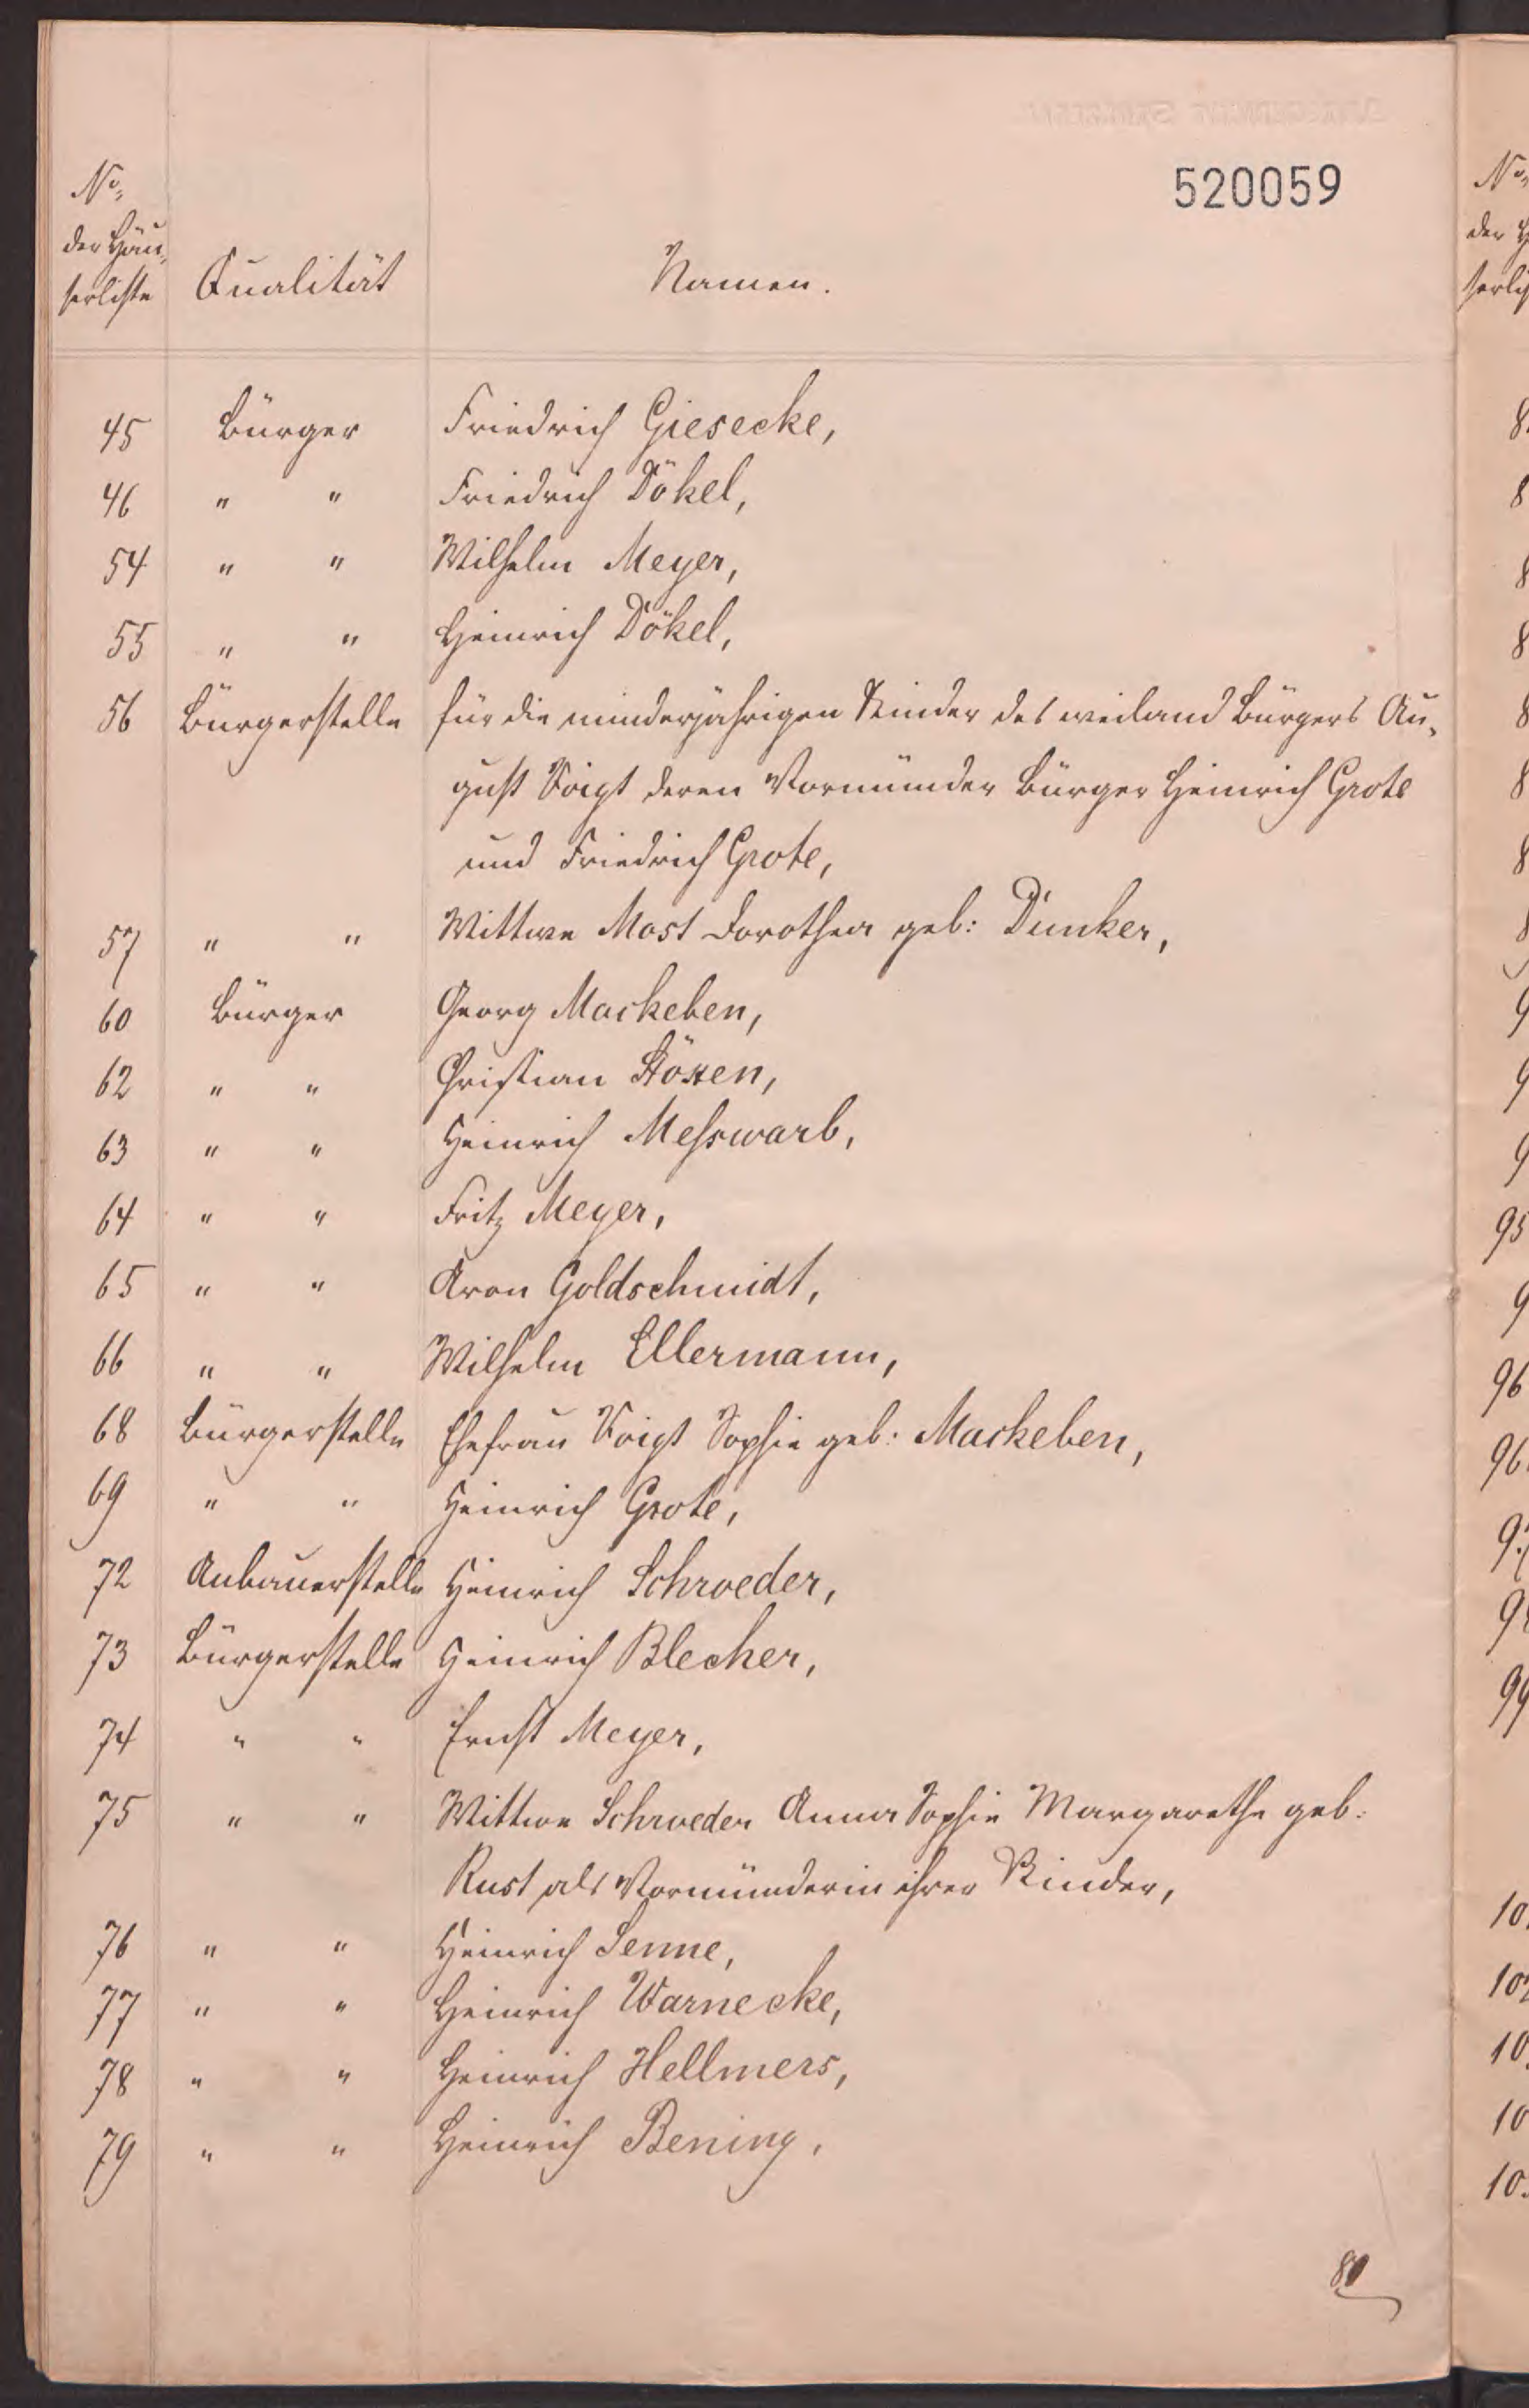 520059
No.
der Häu-
serliste Qualität Namen.
45 Bürger Friedrich Giesecke,
46 " " Friedrich Dökel,
54 " " Wilhelm Meyer,
55 " " Heinrich Dökel,
56 Bürgerstelle für die minderjährigen Kinder des weiland Bürgers Au-
gust Voigt deren Vormünder Bürger Heinrich Grote
und Friedrich Grote,
57 " " Wittwe Most Dorothea geb: Dunker,
60 Bürger Georg Mackeben,
62 " " Christian Stöxen,
63 " " Heinrich Messwarb,
64 " " Fritz Meyer,
65 " " Aron Goldschmidt,
66 " " Wilhelm Ellermann,
68 Bürgerstelle Ehefrau Voigt Sophie geb: Mackeben,
69 " " Heinrich Grote,
72 Anbauerstelle Heinrich Schroeder,
73 Bürgerstelle Heinrich Blecher,
74 " " Ernst Meyer,
75 " " Wittwe Schroeder Anna Sophie Margarethe geb:
Rust als Vormünderin ihrer Kinder,
76 " " Heinrich Senne,
77 " " Heinrich Warnecke,
78 " " Heinrich Hellmers,
79 " " Heinrich Bening,
80